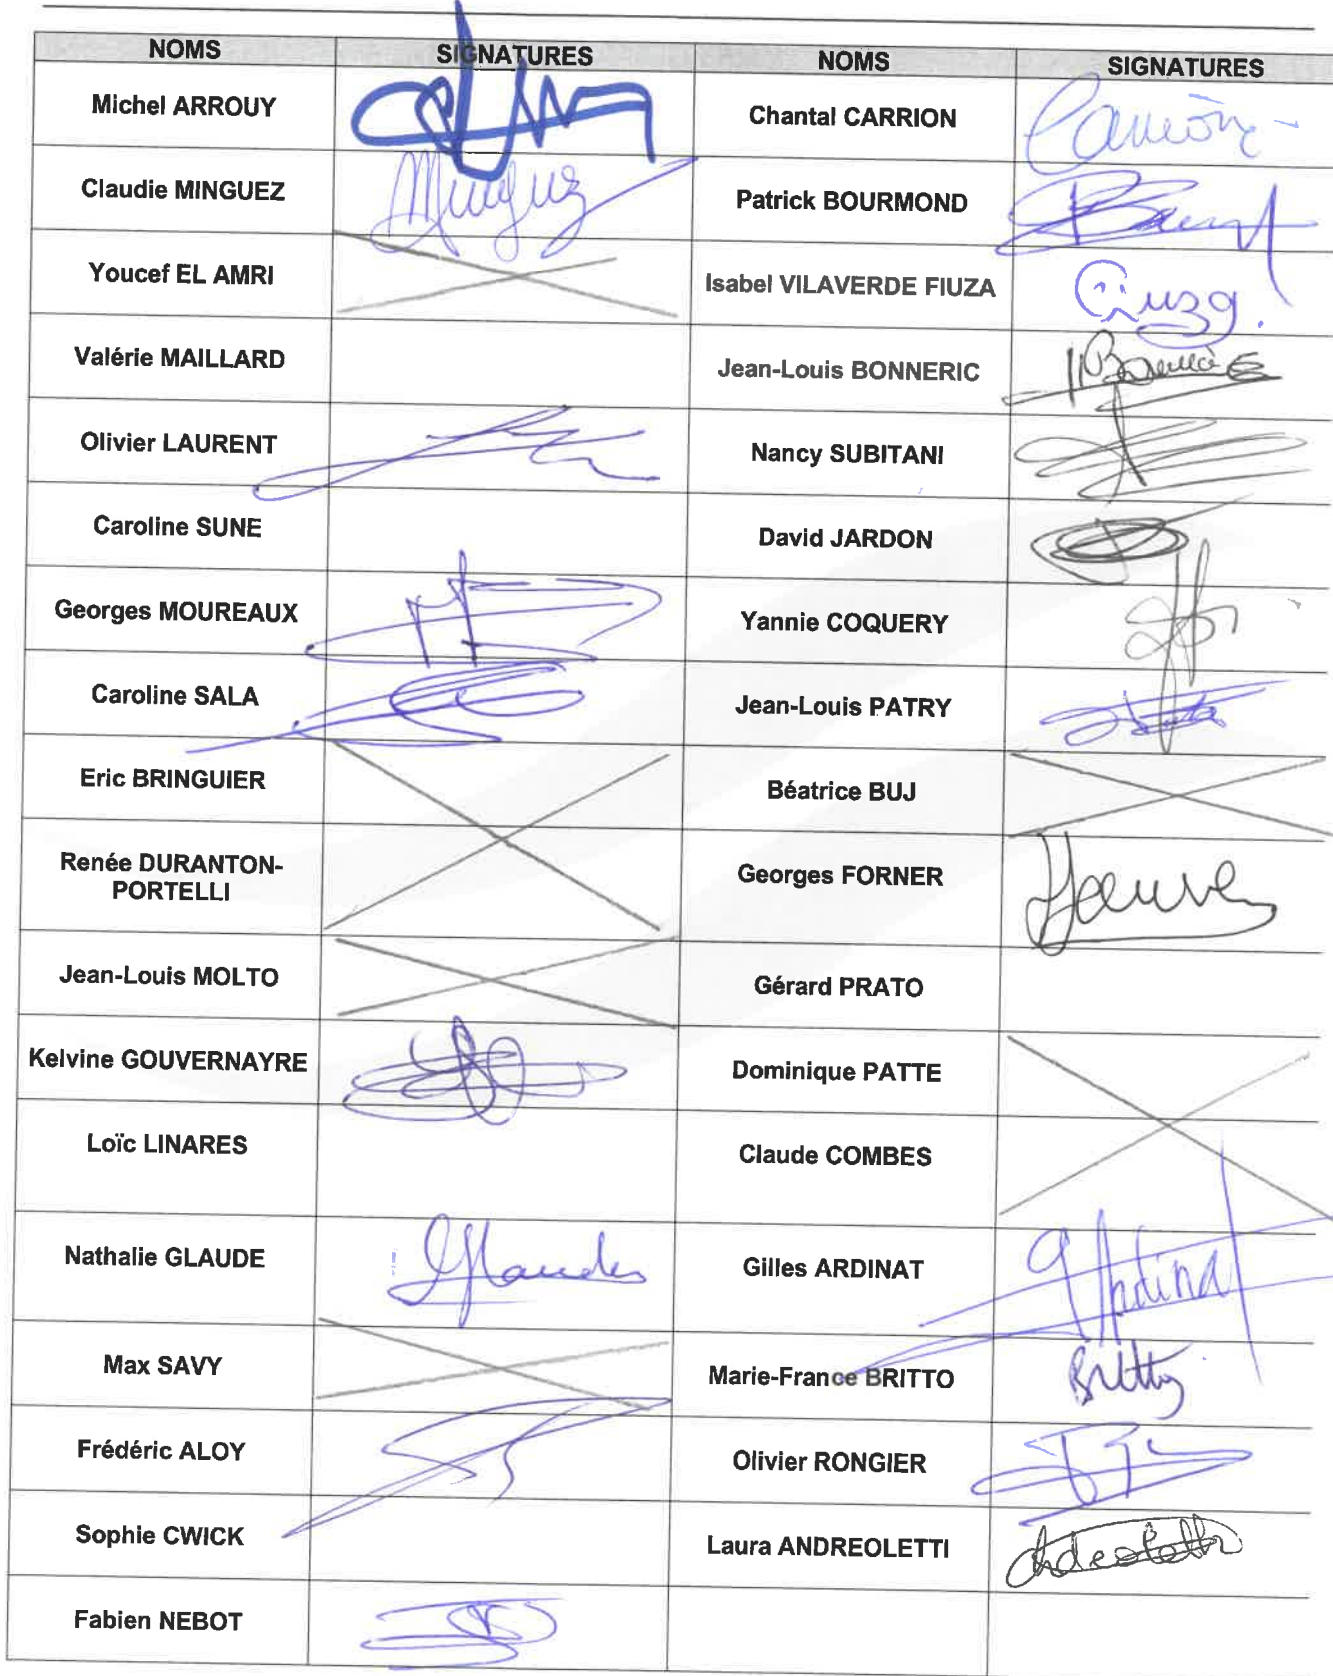 NOMS SIGNATURES NOMS SIGNATURES
Michel ARROUY Chantal CARRION Carrion
Claudie MINGUEZ Minguez Patrick BOURMOND
Youcef EL AMRI Isabel VILAVERDE FIUZA Fiuza.
Valérie MAILLARD Jean-Louis BONNERIC
Olivier LAURENT Nancy SUBITANI
Caroline SUNE David JARDON
Georges MOUREAUX Yannie COQUERY
Caroline SALA Jean-Louis PATRY
Eric BRINGUIER Béatrice BUJ
Renée DURANTON-
PORTELLI Georges FORNER
Jean-Louis MOLTO Gérard PRATO
Kelvine GOUVERNAYRE Dominique PATTE
Loïc LINARES Claude COMBES
Nathalie GLAUDE Glaude Gilles ARDINAT Ardinat
Max SAVY Marie-France BRITTO Britto
Frédéric ALOY Olivier RONGIER
Sophie CWICK Laura ANDREOLETTI Andreoletti
Fabien NEBOT